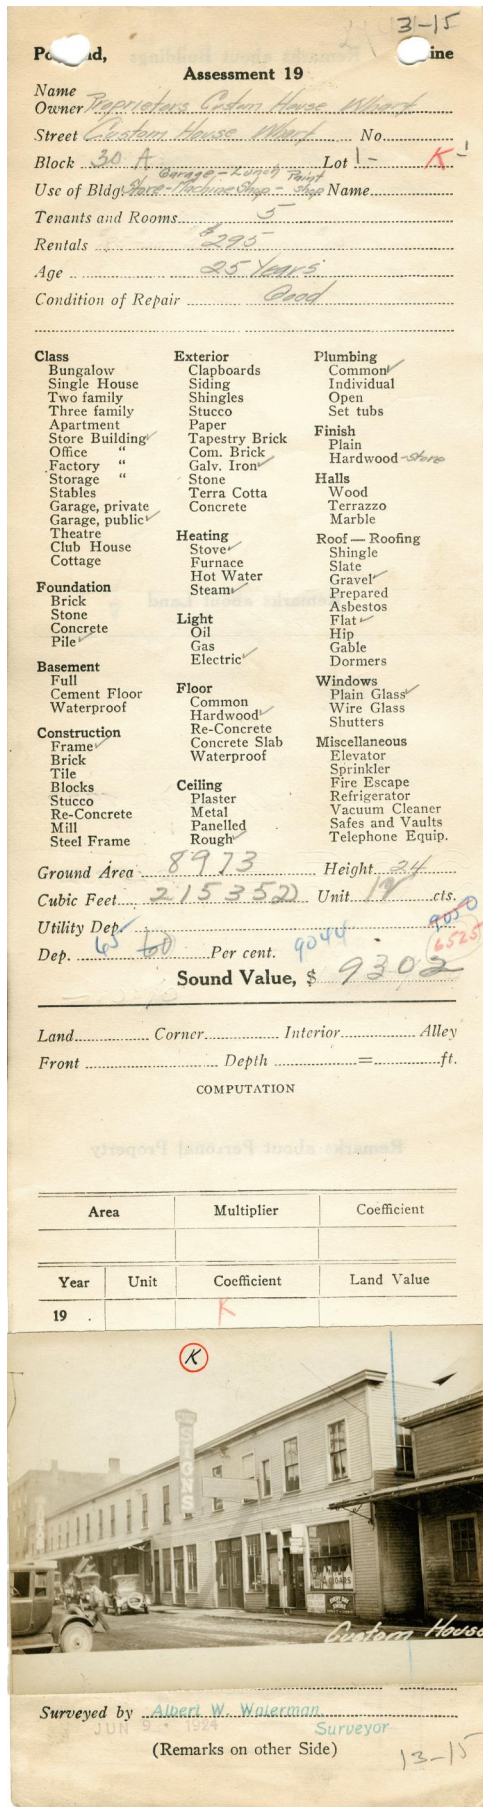 3-15
Po nd, ine
Assessment 19
Name
Owner Proprietors Custom House Wharf
Street Custom House Wharf No.
Block 30 A Lot 1- K-1
Garage - Lunch Paint
Use of Bldg. Store-Machine Shop - Shop Name
Tenants and Rooms 5
Rentals $295
Age 25 Years
Condition of Repair Good
Class
Bungalow
Single House
Two family
Three family
Apartment
Store Building ✓
Office "
Factory "
Storage "
Stables
Garage, private
Garage, public ✓
Theatre
Club House
Cottage
Foundation
Brick
Stone
Concrete
Pile ✓
Basement
Full
Cement Floor
Waterproof
Construction
Frame ✓
Brick
Tile
Blocks
Stucco
Re-Concrete
Mill
Steel Frame
Exterior
Clapboards
Siding
Shingles
Stucco
Paper
Tapestry Brick
Com. Brick
Galv. Iron ✓
Stone
Terra Cotta
Concrete
Heating
Stove ✓
Furnace
Hot Water
Steam ✓
Light
Oil
Gas
Electric ✓
Floor
Common
Hardwood ✓
Re-Concrete
Concrete Slab
Waterproof
Ceiling
Plaster
Metal
Panelled
Rough ✓
Plumbing
Common ✓
Individual
Open
Set tubs
Finish
Plain
Hardwood - store
Halls
Wood
Terrazzo
Marble
Roof — Roofing
Shingle
Slate
Gravel ✓
Prepared
Asbestos
Flat ✓
Hip
Gable
Dormers
Windows
Plain Glass ✓
Wire Glass
Shutters
Miscellaneous
Elevator
Sprinkler
Fire Escape
Refrigerator
Vacuum Cleaner
Safes and Vaults
Telephone Equip.
Ground Area 8973 Height 24
Cubic Feet 215352 Unit cts.
Utility Dep. 9050
Dep. 65 60 Per cent. 9044 6525
Sound Value, $ 9302
Land Corner Interior Alley
Front Depth = ft.
COMPUTATION
Area Multiplier Coefficient
Year Unit Coefficient Land Value
19 K
K
SIGNS
CIGARS
Custom House
Surveyed by Albert W. Waterman
JUN 9 - 1924 Surveyor
(Remarks on other Side)
13-15